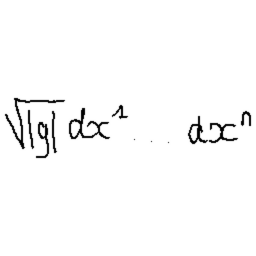 √|g| dx¹ ... dxⁿ